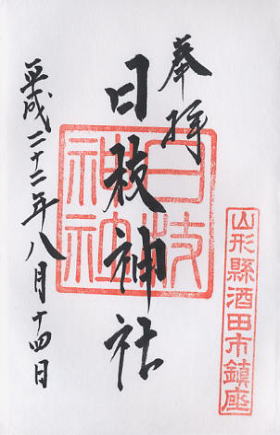 奉拝
日枝神社
平成二十二年八月十四日
日枝神社
山形縣酒田市鎮座